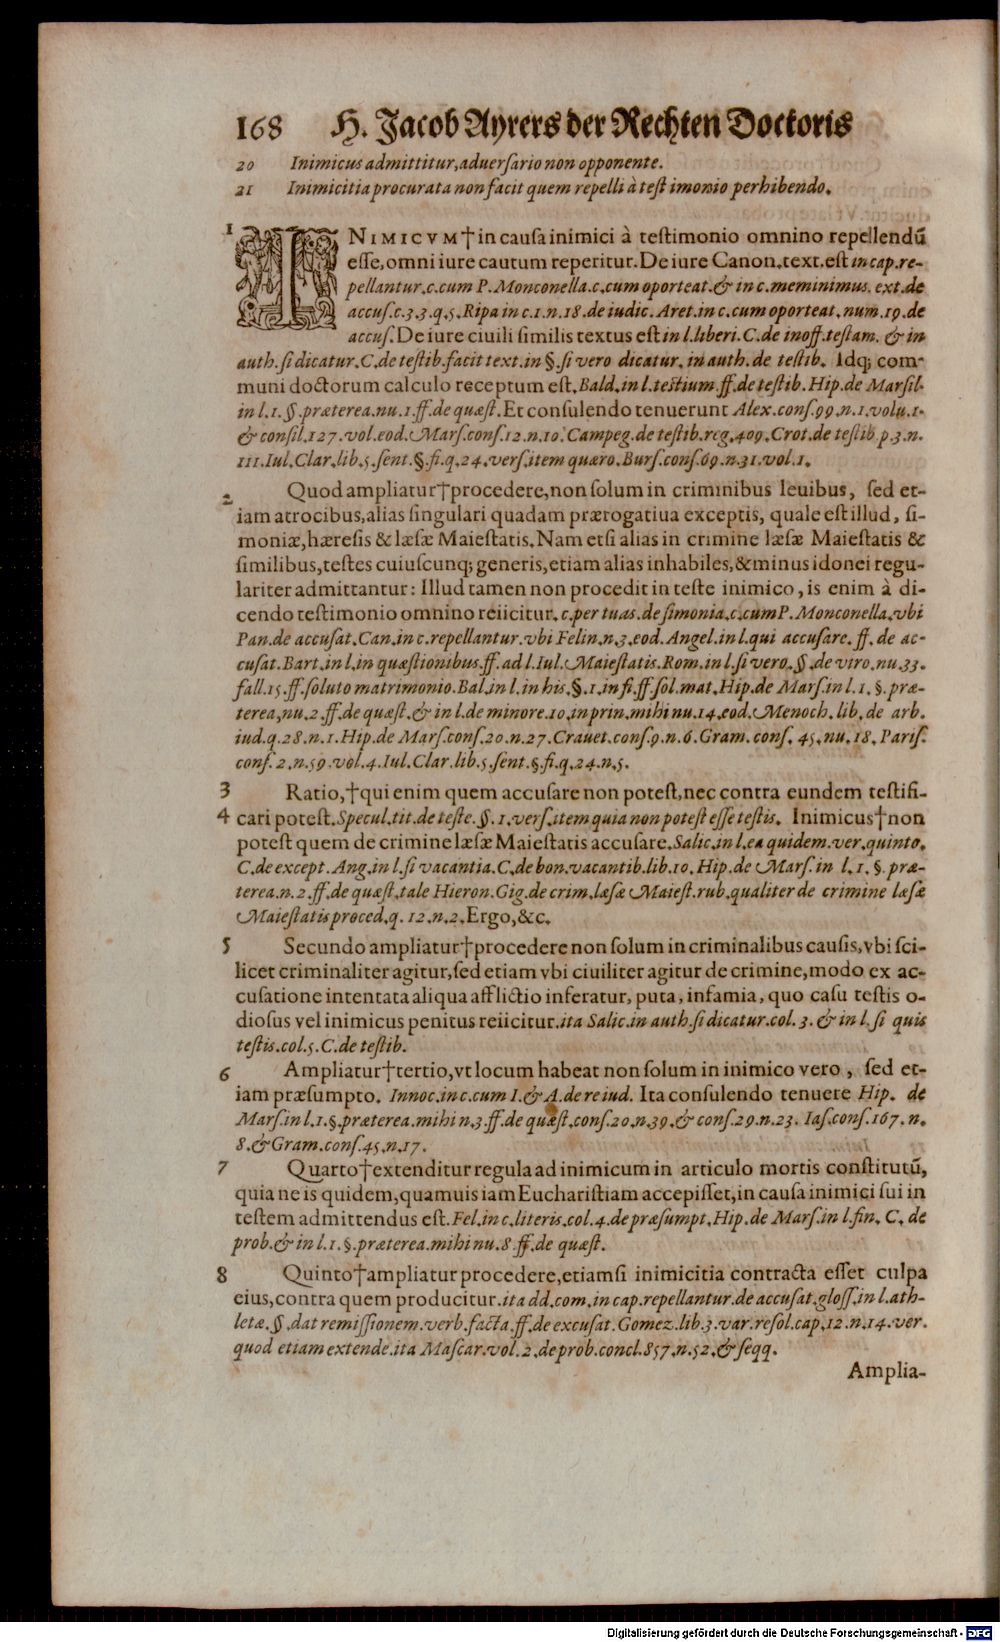 168 H. Jacob Ayrers der Rechten Doctoris
20 Inimicus admittitur, aduerſario non opponente.
21 Inimicitia procurata non facit quem repelli à teſtimonio perhibendo.
1 INIMICVM † in cauſa inimici à teſtimonio omnino repellendū
eſſe, omni iure cautum reperitur. De iure Canon. text. eſt in cap. re-
pellantur. c. cum P. Monconella. c. cum oporteat. & in c. meminimus. ext. de
accuſ. c. 3. 3. q. 5. Ripa in c. 1. n. 18. de iudic. Aret. in c. cum oporteat. num. 19. de
accuſ. De iure ciuili ſimilis textus eſt in l. liberi. C. de inoff. teſtam. & in
auth. ſi dicatur. C. de teſtib. facit text. in §. ſi vero dicatur. in auth. de teſtib. Idq; com-
muni doctorum calculo receptum eſt. Bald. in l. teſtium. ff. de teſtib. Hip. de Marſil.
in l. 1. §. præterea. nu. 1. ff. de quæſt. Et conſulendo tenuerunt Alex. conſ. 99. n. 1. volu. 1.
& conſil. 127. vol. eod. Marſ. conſ. 12. n. 10. Campeg. de teſtib. reg. 409. Crot. de teſtib. p. 3. n.
111. Iul. Clar. lib. 5. ſent. §. fi. q. 24. verſ. item quæro. Burſ. conſ. 69. n. 31. vol. 1.
2 Quod ampliatur † procedere, non ſolum in criminibus leuibus, ſed et-
iam atrocibus, alias ſingulari quadam prærogatiua exceptis, quale eſt illud, ſi-
moniæ, hæreſis & læſæ Maieſtatis. Nam etſi alias in crimine læſæ Maieſtatis &
ſimilibus, teſtes cuiuſcunq; generis, etiam alias inhabiles, & minus idonei regu-
lariter admittantur: Illud tamen non procedit in teſte inimico, is enim à di-
cendo teſtimonio omnino reiicitur. c. per tuas. de ſimonia. c. cum P. Monconella. vbi
Pan. de accuſat. Can. in c. repellantur. vbi Felin. n. 3. eod. Angel. in l. qui accuſare. ff. de ac-
cuſat. Bart. in l. in quæſtionibus. ff. ad l. Iul. Maieſtatis. Rom. in l. ſi vero. §. de viro. nu. 33.
fall. 15. ff. ſoluto matrimonio. Bal. in l. in his. §. 1. in fi. ff. ſol. mat. Hip. de Marſ. in l. 1. §. præ-
terea. nu. 2. ff. de quæſt. & in l. de minore. 10. in prin. mihi nu. 14. eod. Menoch. lib. de arb.
iud. q. 28. n. 1. Hip. de Marſ. conſ. 20. n. 27. Crauet. conſ. 9. n. 6. Gram. conſ. 45. nu. 18. Pariſ.
conſ. 2. n. 59. vol. 4. Iul. Clar. lib. 5. ſent. §. fi. q. 24. n. 5.
3 Ratio, † qui enim quem accuſare non poteſt, nec contra eundem teſtifi-
4 cari poteſt. Specul. tit. de teſte. §. 1. verſ. item quia non poteſt eſſe teſtis. Inimicus † non
poteſt quem de crimine læſæ Maieſtatis accuſare. Salic. in l. ea quidem. ver. quinto.
C. de except. Ang. in l. ſi vacantia. C. de bon. vacantib. lib. 10. Hip. de Marſ. in l. 1. §. præ-
terea. n. 2. ff. de quæſt. tale Hieron. Gig. de crim. læſæ Maieſt. rub. qualiter de crimine læſæ
Maieſtatis proced. q. 12. n. 2. Ergo, &c.
5 Secundo ampliatur † procedere non ſolum in criminalibus cauſis, vbi ſci-
licet criminaliter agitur, ſed etiam vbi ciuiliter agitur de crimine, modo ex ac-
cuſatione intentata aliqua afflictio inferatur, puta, infamia, quo caſu teſtis o-
dioſus vel inimicus penitus reiicitur. ita Salic. in auth. ſi dicatur. col. 3. & in l. ſi quis
teſtis. col. 5. C. de teſtib.
6 Ampliatur † tertio, vt locum habeat non ſolum in inimico vero, ſed et-
iam præſumpto. Innoc. in c. cum I. & A. de re iud. Ita conſulendo tenuere Hip. de
Marſ. in l. 1. §. præterea. mihi n. 3. ff. de quæſt. conſ. 20. n. 39. & conſ. 29. n. 23. Iaſ. conſ. 167. n.
8. & Gram. conſ. 45. n. 17.
7 Quarto † extenditur regula ad inimicum in articulo mortis conſtitutū,
quia ne is quidem, quamuis iam Euchariſtiam accepiſſet, in cauſa inimici ſui in
teſtem admittendus eſt. Fel. in c. literis. col. 4. de præſumpt. Hip. de Marſ. in l. fin. C. de
prob. & in l. 1. §. præterea. mihi nu. 8. ff. de quæſt.
8 Quinto † ampliatur procedere, etiamſi inimicitia contracta eſſet culpa
eius, contra quem producitur. ita dd. com. in cap. repellantur. de accuſat. gloſſ. in l. ath-
letæ. §. dat remiſſionem. verb. facta. ff. de excuſat. Gomez. lib. 3. var. reſol. cap. 12. n. 14. ver.
quod etiam extende. ita Maſcar. vol. 2. de prob. concl. 857. n. 52. & ſeqq.
Amplia-
Digitalisierung gefördert durch die Deutsche Forschungsgemeinschaft - DFG